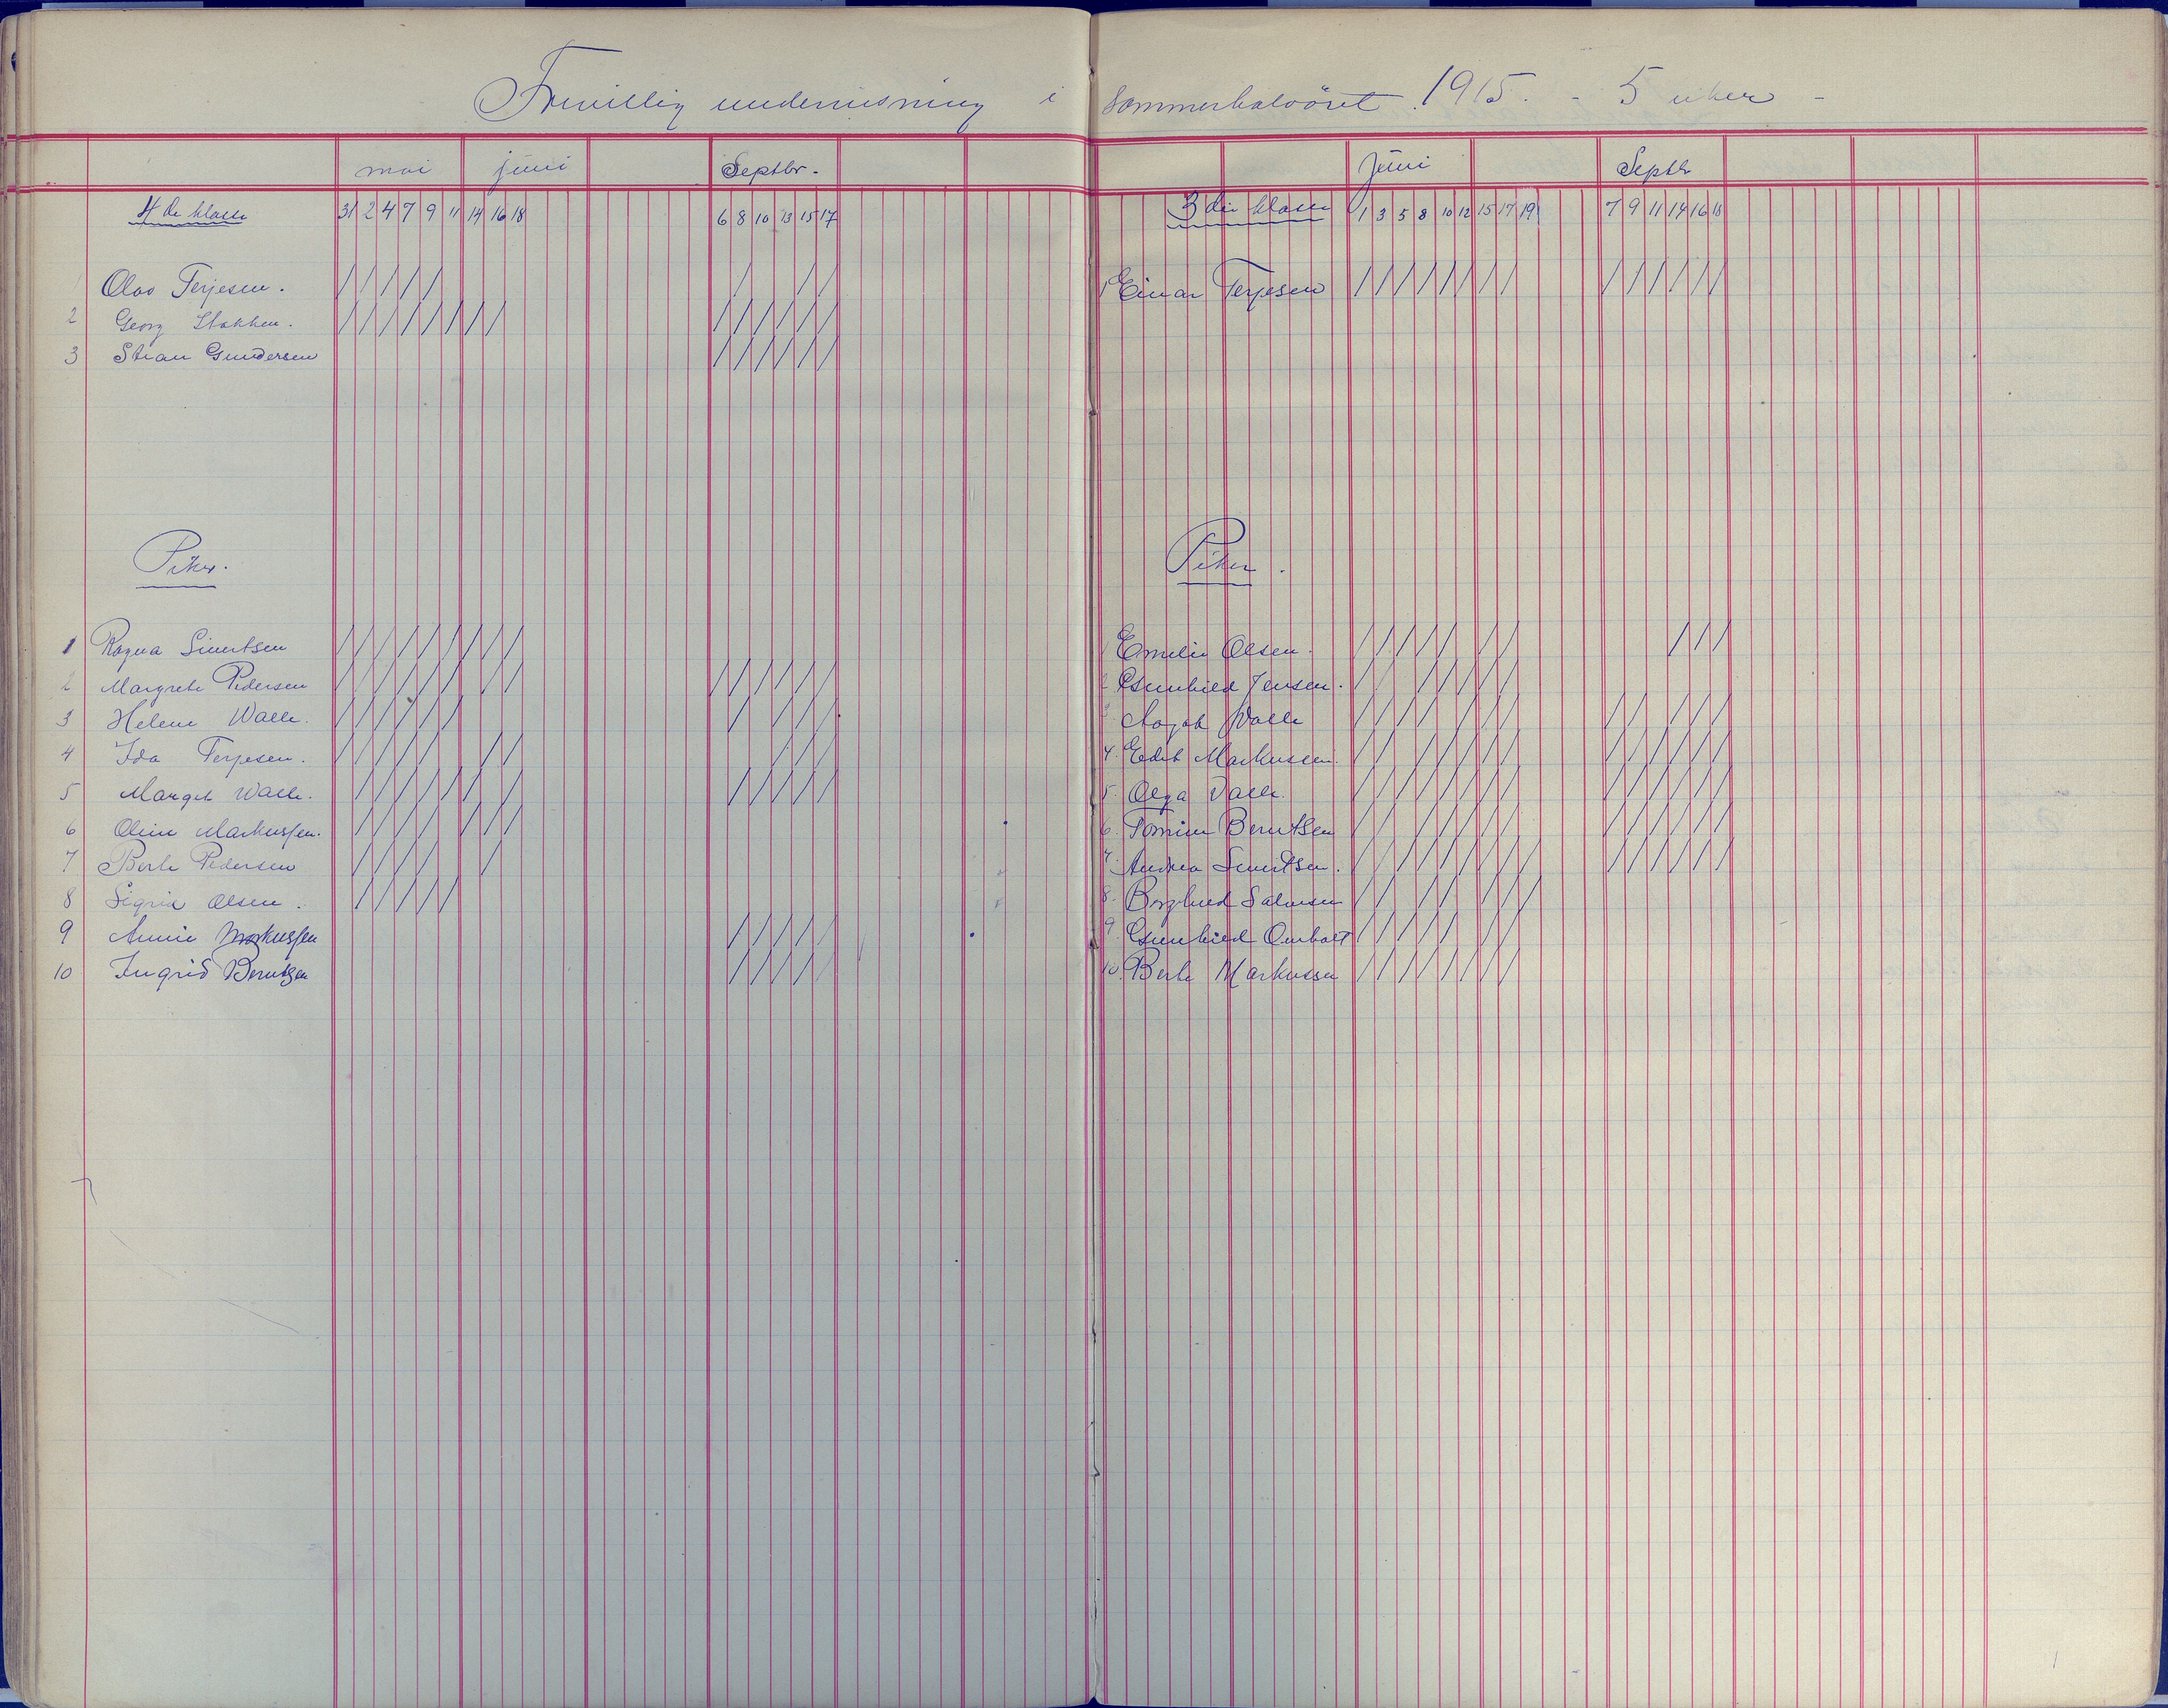 Frivillig undervisning i sommerhalvåret 1915. - 5 uker -
mai juni Septbr.
4de klasse 31 2 4 7 9 11 14 16 18 6 8 10 13 15 17
1 Olav Terjesen.
2 Georg Stokken.
3 Stian Gundersen
Piker.
1 Ragna Sivertsen
2 Margrete Pedersen
3 Helene Walle.
4 Ida Terjesen.
5 Margit Walle.
6 Oline Markussen.
7 Berte Pedersen
8 Sigrid Olsen.
9 Annie Markussen
10 Ingrid Berntsen
Juni Septbr
3die klasse 1 3 5 8 10 12 15 17 19 7 9 11 14 16 18
1 Einar Terjesen
Piker.
1 Emelie Olsen.
2 Gunhild Jensen.
3 Aagot Walle
4. Edit Markussen.
5. Olga Valle.
6. Tomine Berntsen
7. Andrea Sivertsen.
8. Borghild Salvesen
9. Gunhild Omholt
10. Berte Markussen